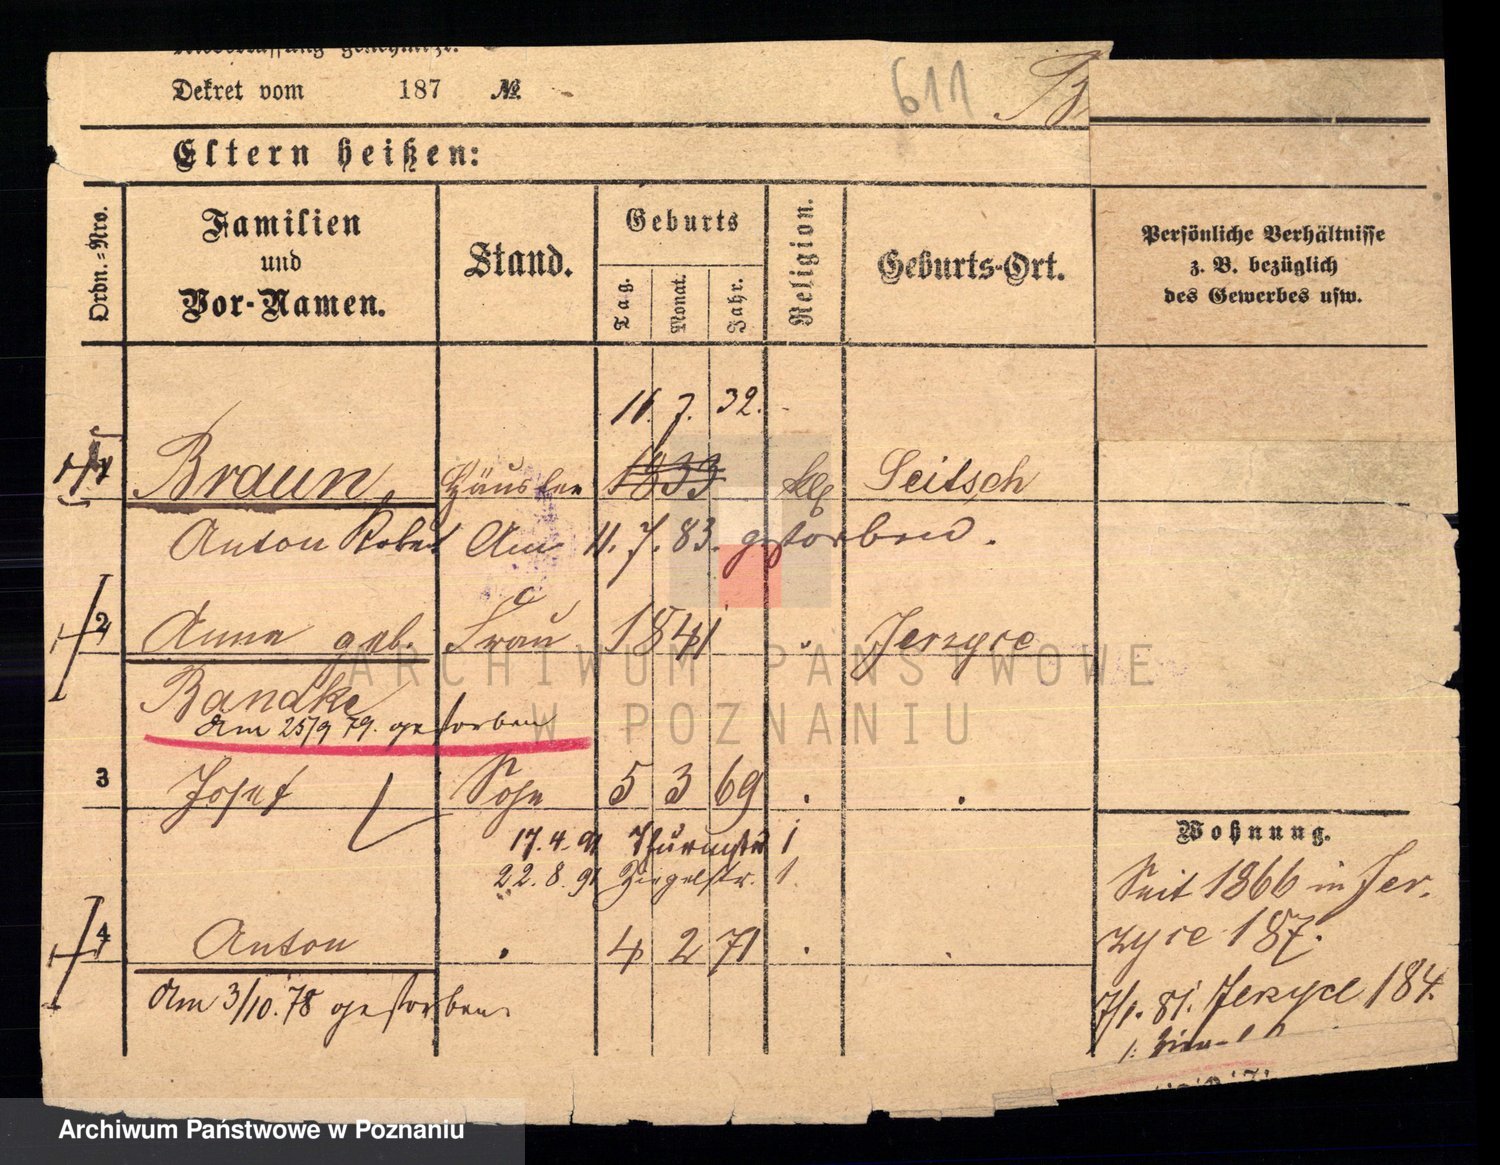 Niederlassung genehmigt.
Dekret vom 187 №.
611
Eltern heißen:
Ordn.=Nro.
Familien
und
Vor-Namen.
Stand.
Geburts
Tag.
Monat.
Jahr.
Religion.
Geburts-Ort.
Persönliche Verhältnisse
z. B. bezüglich
des Gewerbes usw.
11. 7. 32.
1 Braun Häusler 1833 kth Seitsch
Anton Robert Am 11. 7. 83. gestorben.
2 Anna geb. Frau 1841 " Jerzyce
Bandke
Am 25/9 79. gestorben
3 Josef Sohn 5 3 69 . .
17. 4. 91 Thurmstr 1
22. 8. 91 Ziegelstr. 1.
4 Anton . 4 2 71 . .
Am 3/10. 78 gestorben.
Wohnung.
Seit 1866 in Jer-
zyce 187.
7/1. 81. Jerzyce 184.
ARCHIWUM PAŃSTWOWE
W POZNANIU
Archiwum Państwowe w Poznaniu